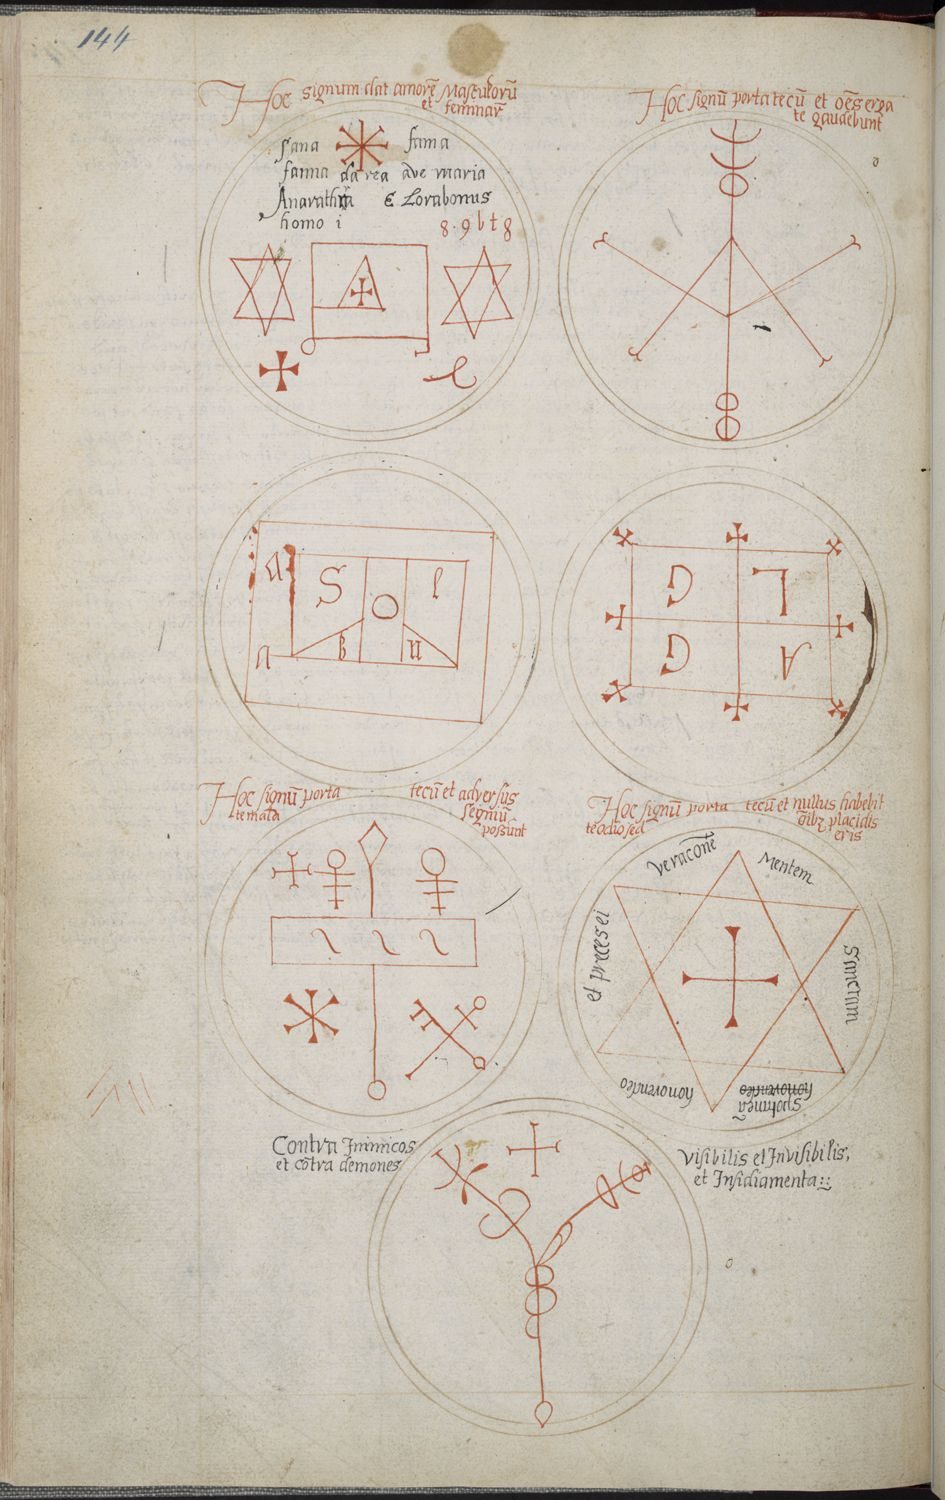 144
Hoc signum dat amorē Masculorū
et feminar̄
fana fama
fama da rea ave maria
E Lorabonus
homo i
8·9btg
A
Hoc signū porta tecū et oēs erga
te gaudebunt
a S O l
a B u
G L
G A
Hoc signū porta tecū et adversūs
te mala
possunt
Hoc signū porta tecū et nullus habebit
te odio sed oībꝫ placidis
eris
Veracone
Mentem
Sanctam
honorendeo
et precesei
Contra Inimicos
et cōtra demones
visibilis et Invisibilis,
et Insidiamenta::